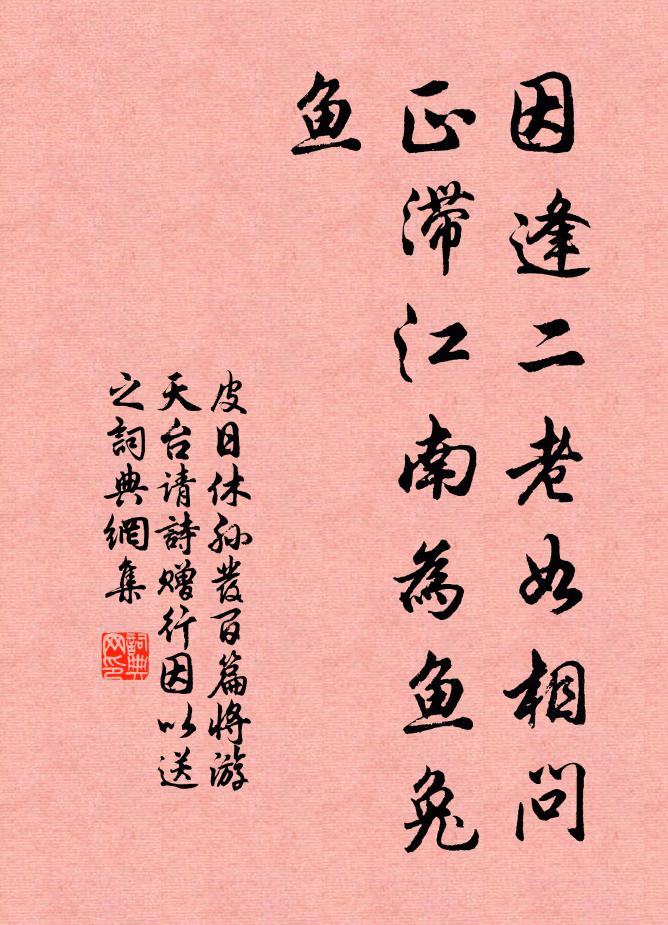 因逢二老如相问
正滞江南为鱼兔
鱼
皮日休孙发百篇将游
天台请詩赠行因以送
之詞典網集
詞典网印